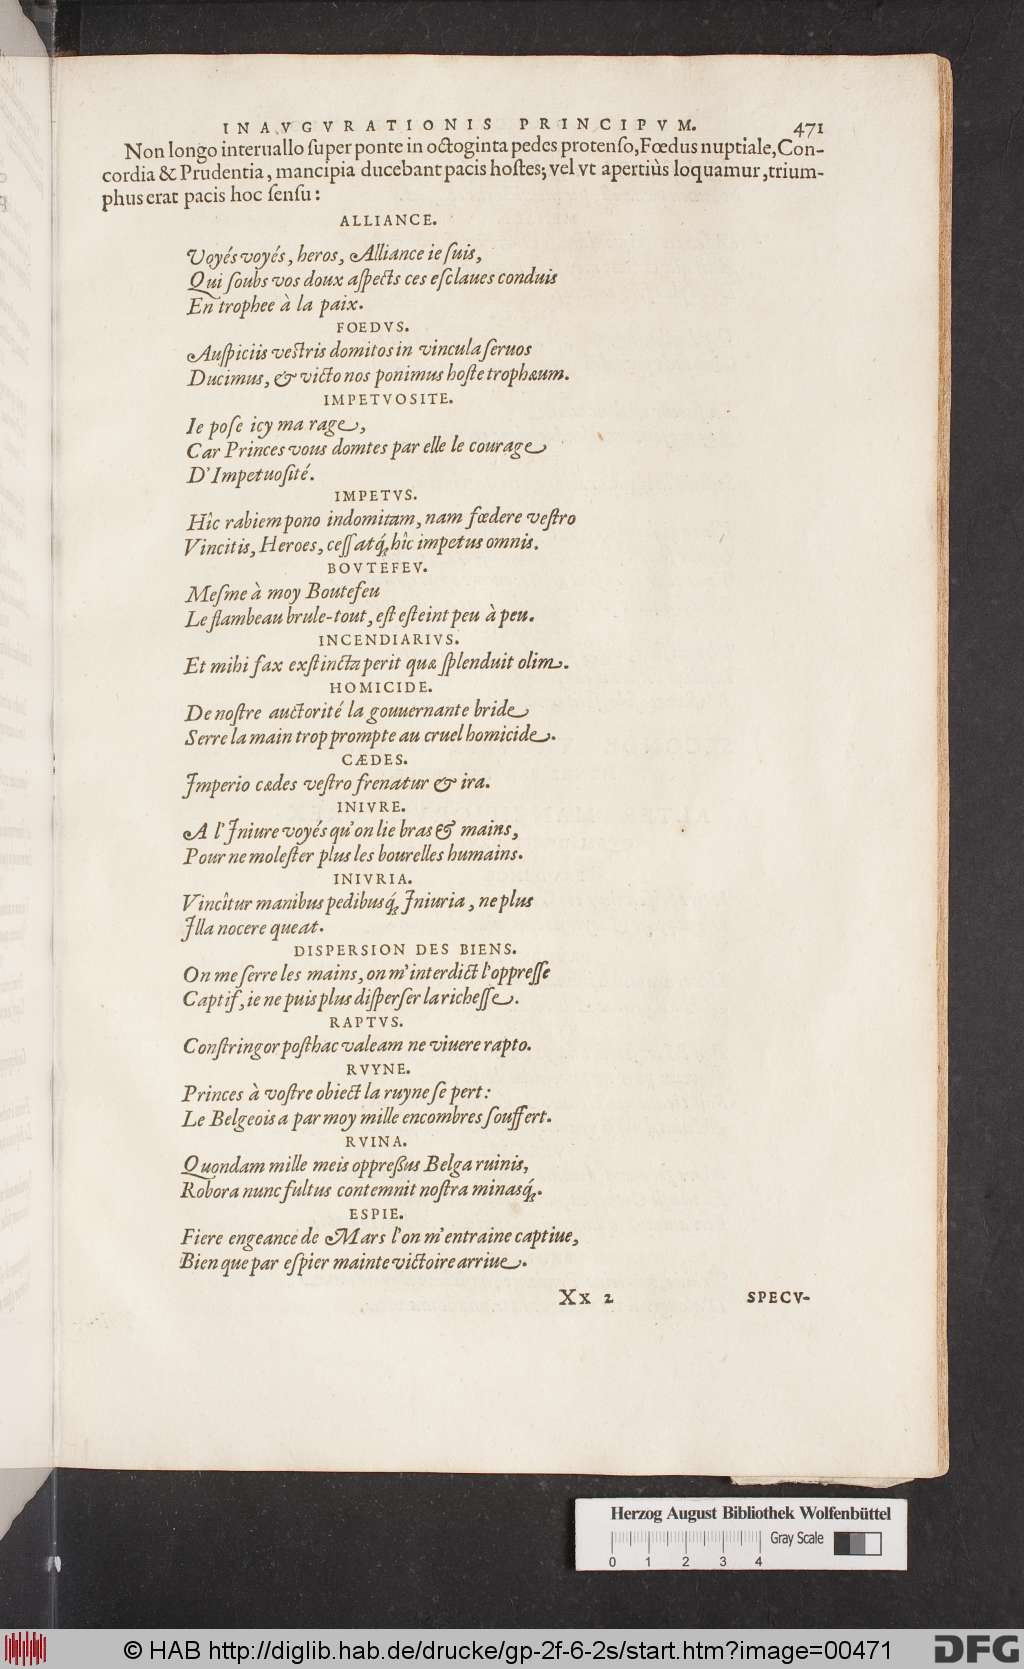 INAVGVRATIONIS PRINCIPVM. 471
Non longo interuallo ſuper ponte in octoginta pedes protenſo, Fœdus nuptiale, Con-
cordia & Prudentia, mancipia ducebant pacis hoſtes; vel vt apertiùs loquamur, trium-
phus erat pacis hoc ſenſu:
ALLIANCE.
Voyés voyés, heros, Alliance ie ſuis,
Qui ſoubs vos doux aſpects ces eſclaues conduis
En trophee à la paix.
FOEDVS.
Auſpiciis veſtris domitos in vincula ſeruos
Ducimus, & victo nos ponimus hoſte trophæum.
IMPETVOSITE.
Ie poſe icy ma rage,
Car Princes vous domtes par elle le courage
D'Impetuoſité.
IMPETVS.
Hîc rabiem pono indomitam, nam fœdere veſtro
Vincitis, Heroes, ceſſatq́; hîc impetus omnis.
BOVTEFEV.
Meſme à moy Boutefeu
Le flambeau brule-tout, eſt eſteint peu à peu.
INCENDIARIVS.
Et mihi fax exſtincta perit quæ ſplenduit olim.
HOMICIDE.
De noſtre auctorité la gouuernante bride
Serre la main trop prompte au cruel homicide.
CÆDES.
Imperio cædes veſtro frenatur & ira.
INIVRE.
A l'Iniure voyés qu'on lie bras & mains,
Pour ne moleſter plus les bourelles humains.
INIVRIA.
Vincîtur manibus pedibusq́; Iniuria, ne plus
Illa nocere queat.
DISPERSION DES BIENS.
On me ſerre les mains, on m'interdict l'oppreſſe
Captif, ie ne puis plus diſperſer la richeſſe.
RAPTVS.
Conſtringor poſthac valeam ne viuere rapto.
RVYNE.
Princes à voſtre obiect la ruyne ſe pert:
Le Belgeois a par moy mille encombres ſouffert.
RVINA.
Quondam mille meis oppreßus Belga ruinis,
Robora nunc fultus contemnit noſtra minasq́;.
ESPIE.
Fiere engeance de Mars l'on m'entraine captiue,
Bien que par eſpier mainte victoire arriue.
Xx 2 SPECV-
Herzog August Bibliothek Wolfenbüttel
Gray Scale
0 1 2 3 4
© HAB http://diglib.hab.de/drucke/gp-2f-6-2s/start.htm?image=00471
DFG